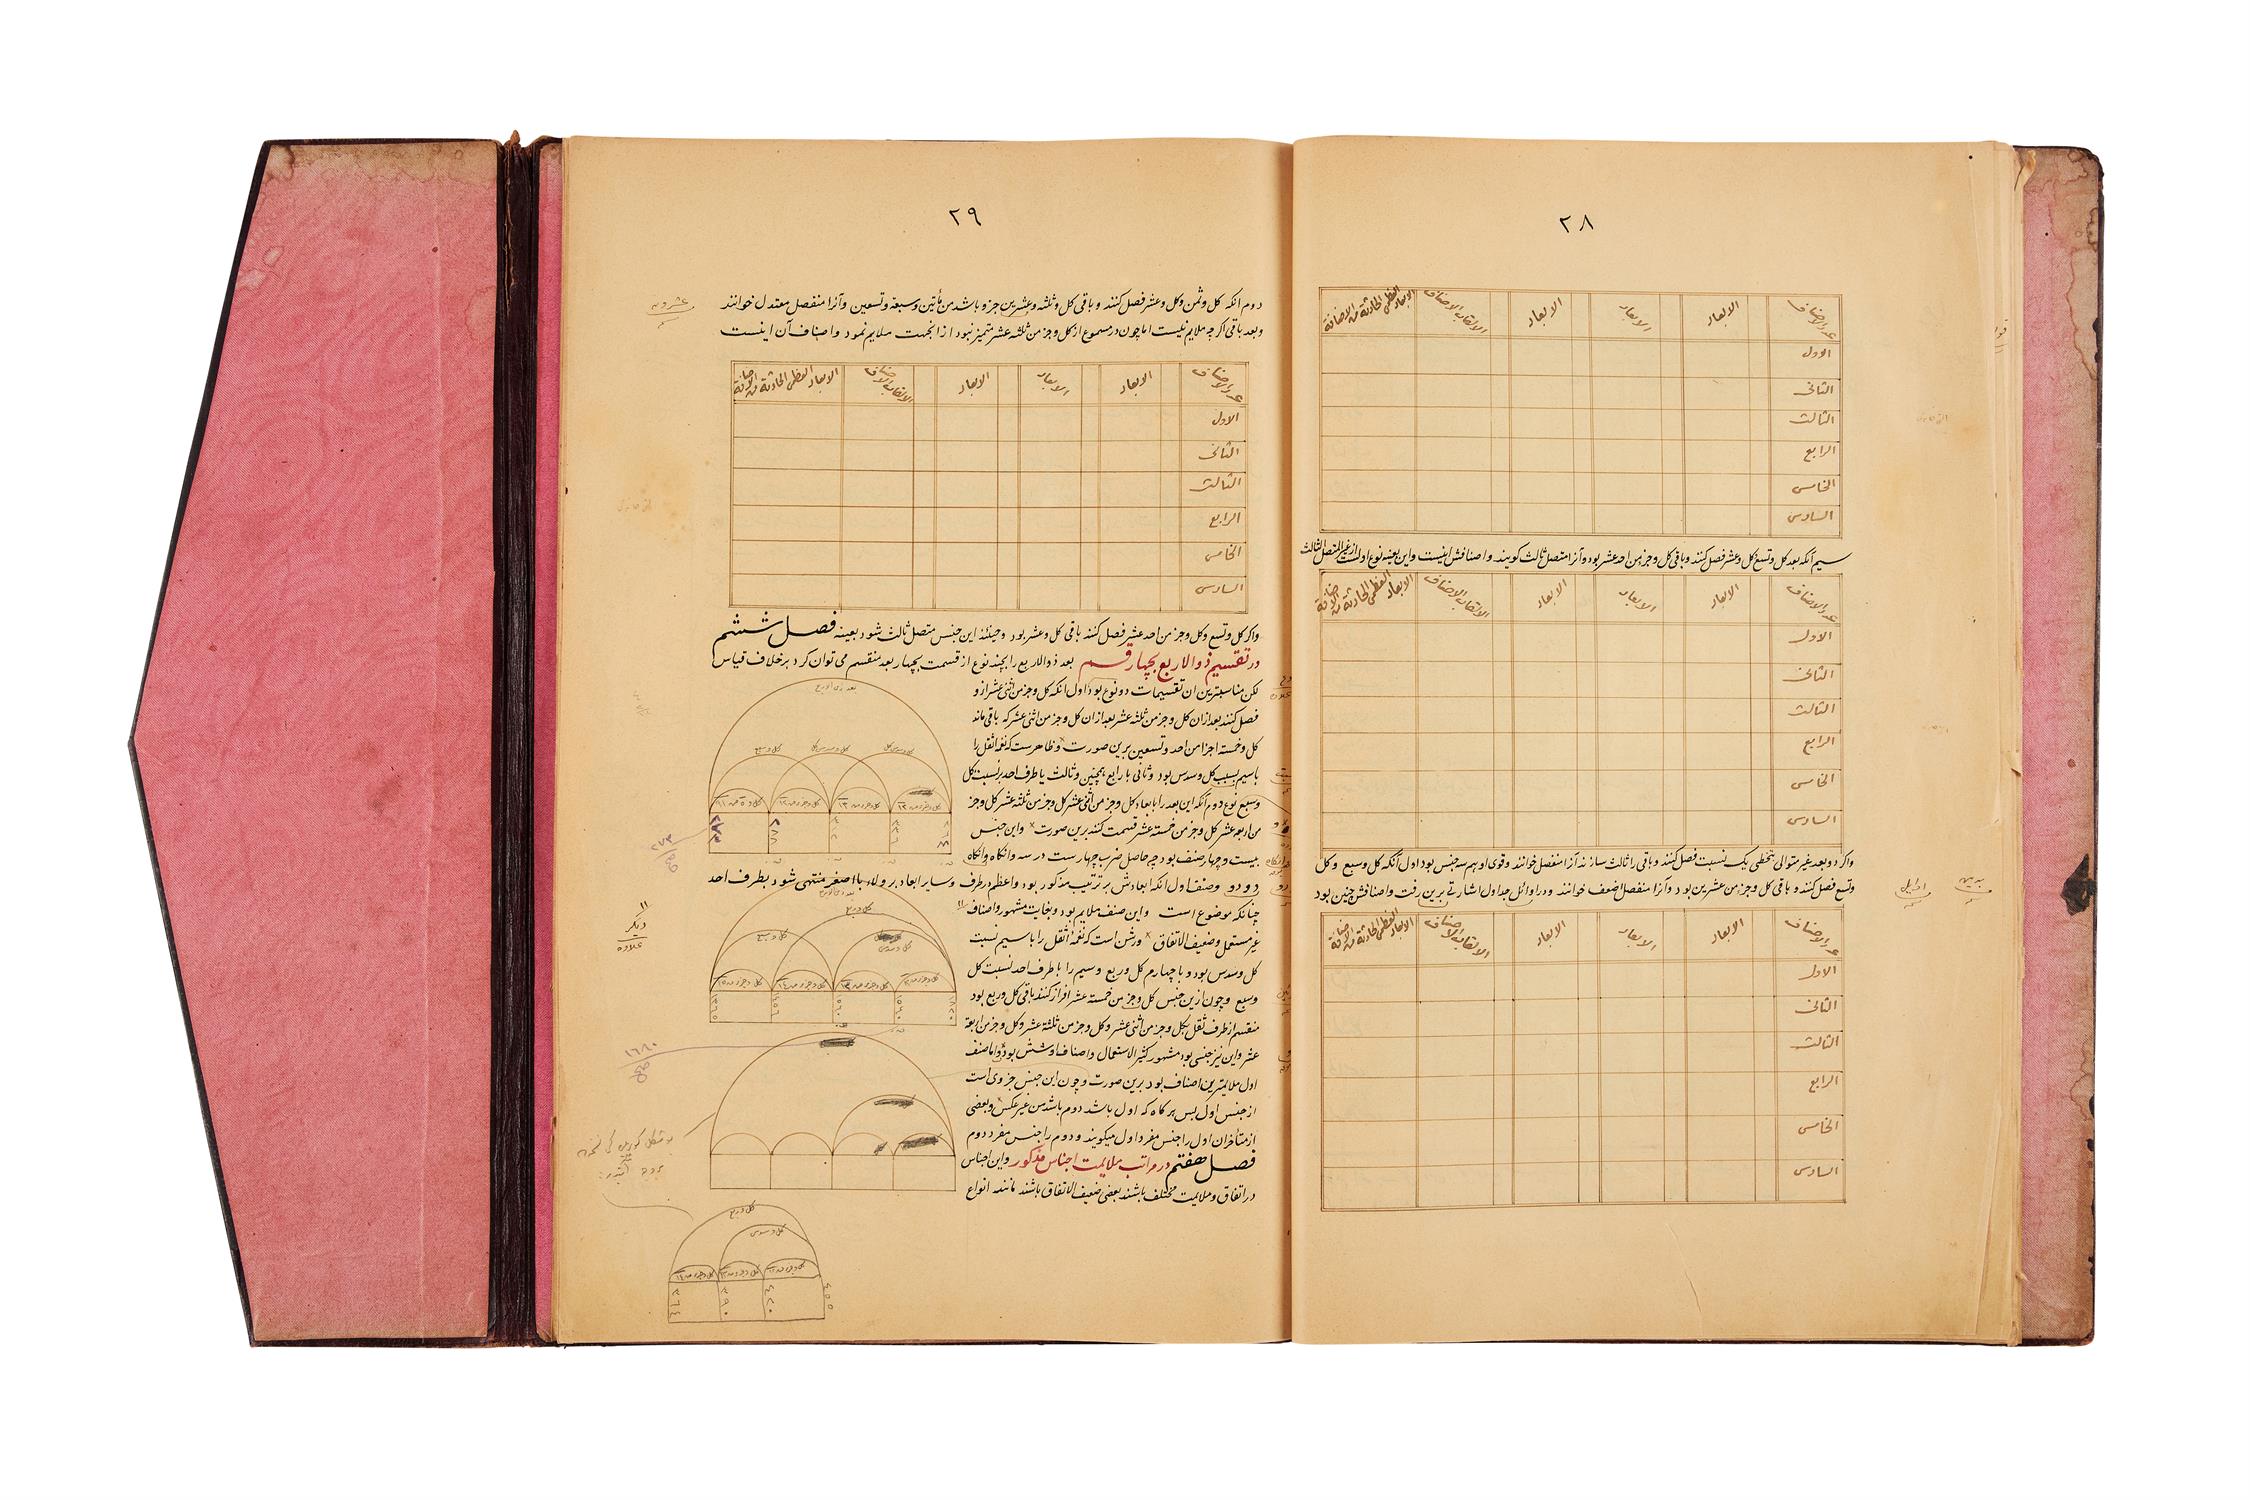 ٢٨
عدد الاصناف الابعاد الابعاد الابعاد الالقاب الاصناف الابعاد العظمى الحادثة من الاضافة
الاول
الثانى
الثالث
الرابع
الخامس
السادس
سیم آنکه بعد کل و تسع کل و عشر فصل کنند و باقی کل و جز من احد عشر بود و آنرا متصل ثالث کویند و اصنافش اینست و این بعینه نوع اولست از غیر المتصل الثالث
عدد الاصناف الابعاد الابعاد الابعاد الالقاب الاصناف الابعاد العظمى الحادثة من الاضافة
الاول
الثانى
الثالث
الرابع
الخامس
السادس
واکر دو بعد غیر متوالی بتخطی یک نسبت فصل کنند و باقی را ثالث سازند آنرا منفصل خوانند وقوی او بهم سه جنس بود اول آنکه کل و سبع و کل
وتسع فصل کنند و باقی کل و جز من عشرین بود و آنرا منفصل اضعف خوانند و در اوائل جداول اشارتی برین رفت و اصنافش چنین بود
عدد الاصناف الابعاد الابعاد الابعاد الالقاب الاصناف الابعاد العظمى الحادثة من الاضافة
الاول
الثانى
الثالث
الرابع
الخامس
السادس
٢٩
دوم آنکه کل و ثمن و کل و عشر فصل کنند و باقی کل و ثلثه و عشرین جزو باشد من مأتین و سبعة و تسعین و آنرا منفصل معتدل خوانند
و بعد باقی اکرچه ملایم نیست اما چون در مسموع از کل و جز من ثلثه عشر متمیز نبود از انجهت ملایم نمود و اصناف آن اینست
عدد الاصناف الابعاد الابعاد الابعاد الالقاب الاصناف الابعاد العظمى الحادثة من الاضافة
الاول
الثانى
الثالث
الرابع
الخامس
السادس
واکر کل و تسع و کل و جز من احد عشر فصل کنند باقی کل و عشر بود و حینئذ این جنس متصل ثالث شود بعینه فصل ششم
در تقسیم ذو الاربع بچهار قسم بعد ذو الاربع را بچند نوع از قسمت بچهار بعد منقسم می توان کرد بر خلاف قیاس
لکن مناسبترین ان تقسیمات دو نوع بود اول آنکه کل و جز من اثنی عشر از و
فصل کنند بعد ازان کل و جز من ثلثه عشر بعد ازان کل و جز من اثنی عشر که باقی ماند
کل و خمسة اجزا من احد و تسعین برین صورت و ظاهرست که نغمه اثقل را
با سیم بسبب کل و سدس بود و ثانی با رابع همچنین و ثالث با طرف احد بر نسبت کل
و سبع نوع دوم آنکه این بعد را بابعاد کل و جز من اثنی عشر کل و جز من ثلثه عشر کل و جز
من اربعه عشر کل و جز من خمسة عشر قسمت کنند برین صورت و این جنس
بیست و چهار صنف بود چه حاصل ضرب چهارست در سه و انکاه و انکاه
در دو و صنف اول آنکه ابعادش بر ترتیب مذکور بود و اعظم در طرف و سایر ابعاد بر ولاء با اصغر منتهی شود بطرف احد
چنانکه موضوع است و این صنف ملایم بود و بغایت مشهور و اصناف
غیر مستعمل وضعیف الاتفاق و روشن است که نغمه اثقل را با سیم نسبت
کل و سدس بود و با چهارم کل و ربع و سیم را با طرف احد نسبت کل
و سبع و چون ازین جنس کل و جز من خمسة عشر افراز کنند باقی کل و ربع بود
منقسم از طرف ثقل بکل و جز من اثنی عشر و کل و جز من ثلثة عشر و کل و جز من اربعة
عشر و این نیز جنسی بود مشهور کثیر الاستعمال و اصناف او شش بود و اما صنف
اول ملایمترین اصناف بود برین صورت و چون این جنس جزوی است
از جنس اول پس هر کاه که اول باشد دوم باشد من غیر عکس و بعضی
از متأخران اول را جنس مفرد اول میکویند و دوم را جنس مفرد دوم
فصل هفتم در مراتب ملایمت اجناس مذکور و این اجناس
در اتفاق و ملایمت مختلف باشند بعضی ضعیف الاتفاق باشند مانند انواع
کل و ربع
کل و سدس
٣٦٤ ٣٩٠ ٤٢٠ ٤٥٥
٢٧٣
١٦٨٠
دیکر
علاوه